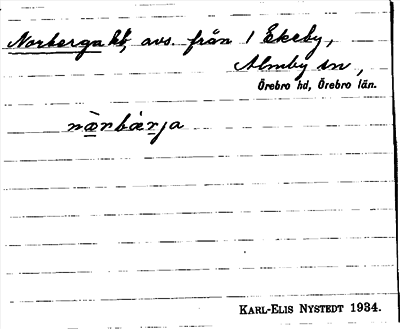 Norberga kb, avs. från 1 Ekeby,
Almby sn,
Örebro hd, Örebro län.
næ̀rbærja
KARL-ELIS NYSTEDT 1934.